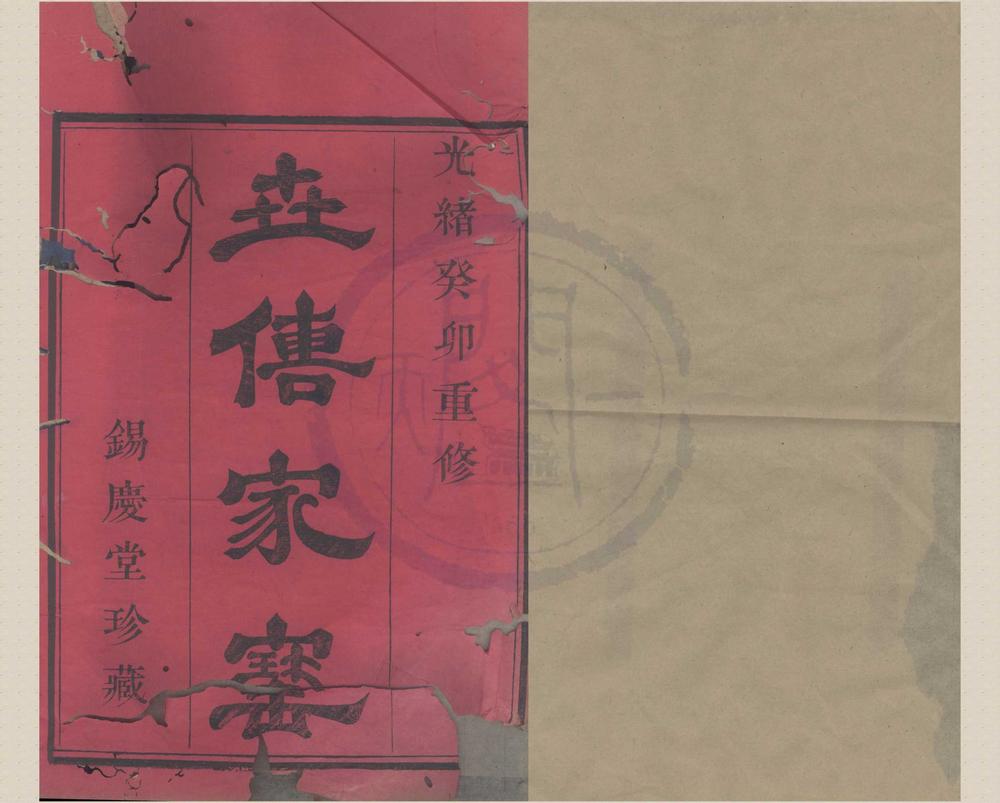 光緒癸卯重修
卋傳家寶
錫慶堂珍藏